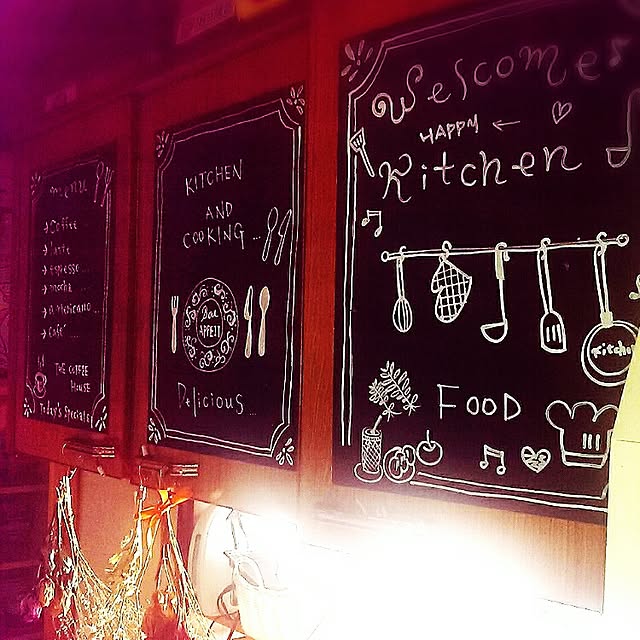 menu
Coffee...
Latte...
Espresso...
mocha...
Americano...
Café...
THE COFFEE
HOUSE
Today's Specials
KITCHEN
AND
COOKING...
Bon
APPETIT
Delicious...
Welcome
HAPPY ←
Kitchen
Kitchen
FOOD